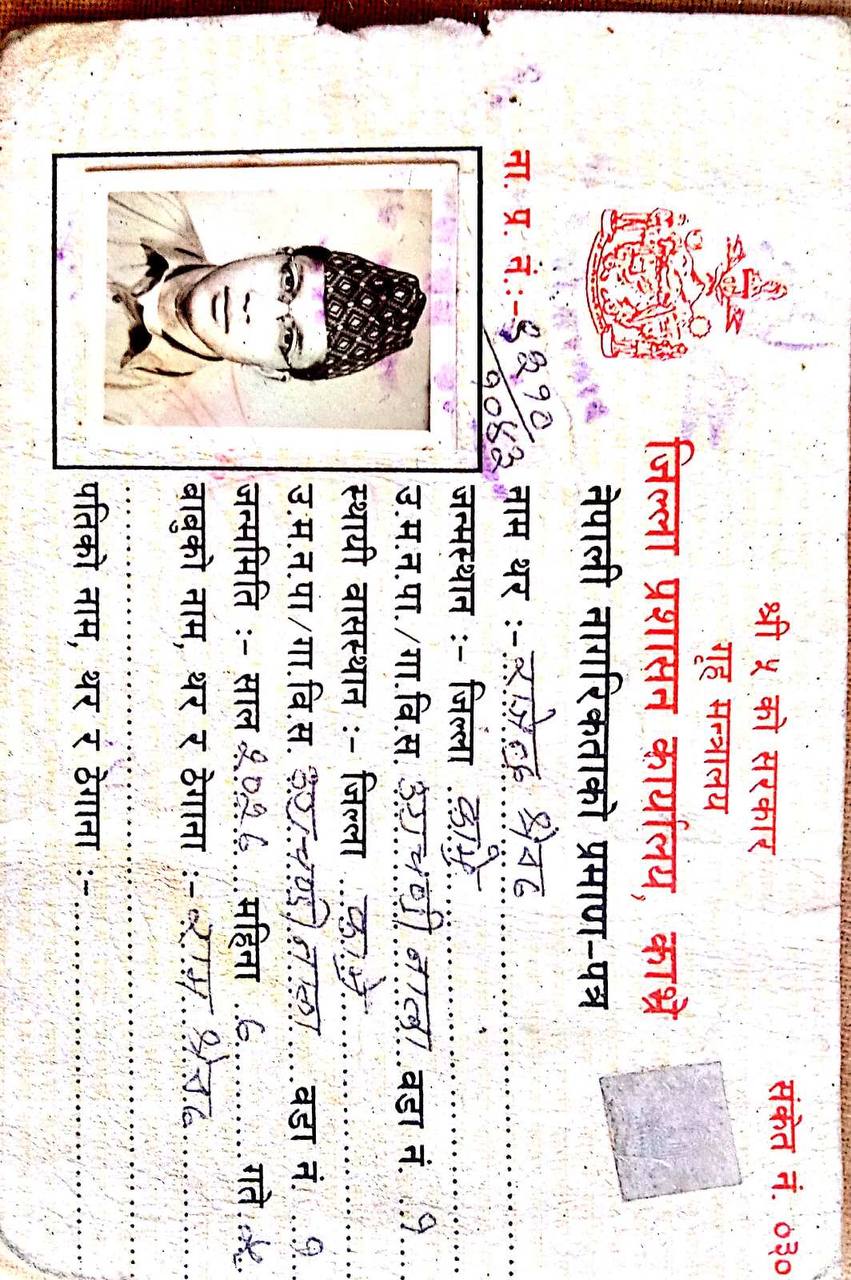 श्री ५ को सरकार
गृह मन्त्रालय
संकेत नं. ०३०
जिल्ला प्रशासन कार्यालय, काभ्रे
नेपाली नागरिकताको प्रमाण-पत्र
ना. प्र. नं.:-
नाम थर :- श्रेष्ठ
जन्मस्थान :- जिल्ला काभ्रे
उ.म.न.पा./गा.वि.स. उग्रचण्डी नाला वडा नं. १
स्थायी वासस्थान :- जिल्ला काभ्रे
उ.म.न.पा/गा.वि.स. उग्रचण्डी नाला वडा नं. १
जन्ममिति :- साल महिना गते
बाबुको नाम, थर र ठेगाना :- राम श्रेष्ठ
पतिको नाम, थर र ठेगाना :-